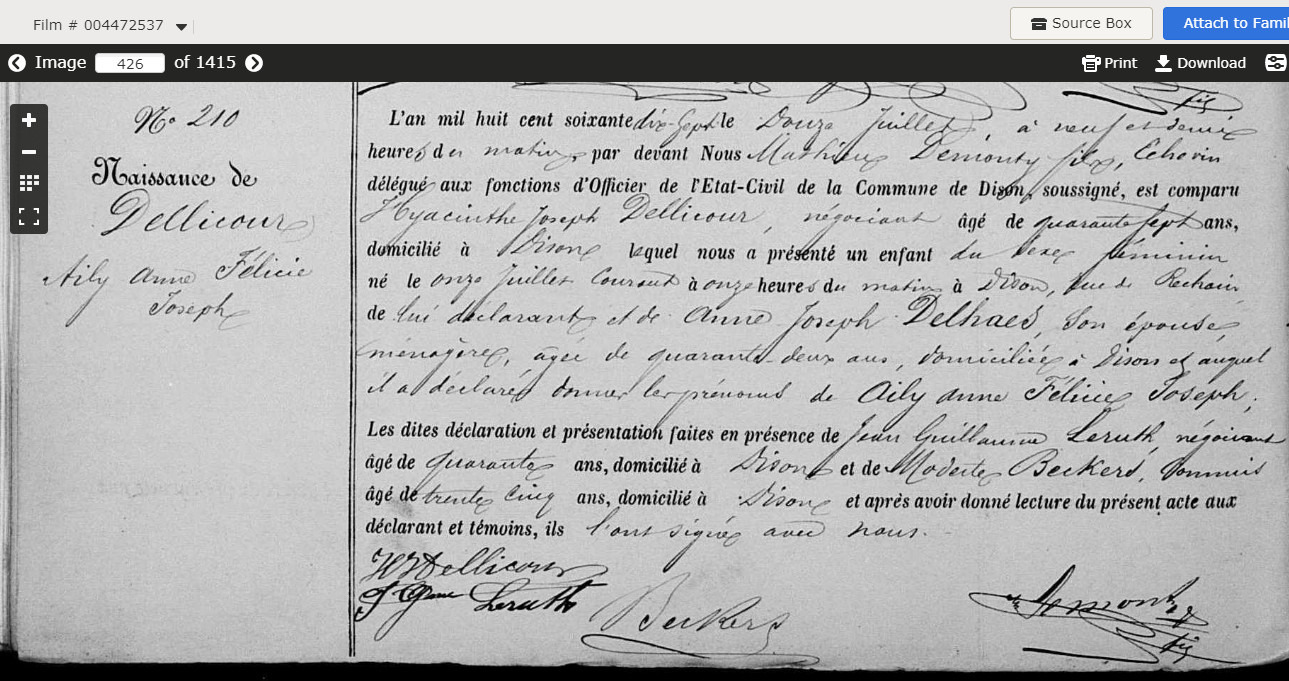 Film # 004472537
Source Box
Attach to Famil
Image 426 of 1415
Print
Download
fils
Nº 210
Naissance de
Dellicour
Aily Anne Félicie
Joseph
L'an mil huit cent soixante dix-Sept le Douze Juillet, à neuf et demie
heures du matin, par devant Nous Mathieu Demonty fils, Echevin
délégué aux fonctions d'Officier de l'Etat-Civil de la Commune de Dison, soussigné, est comparu
Hyacinthe Joseph Dellicour, négociant âgé de quarante sept ans,
domicilié à Dison lequel nous a présenté un enfant du sexe féminin
né le onze Juillet Courant à onze heures du matin à Dison, rue de Rechain,
de lui déclarant et de Anne Joseph Delhaes, Son épouse
ménagère, âgée de quarante-deux ans, domiciliée à Dison et auquel
il a déclaré donner les prénoms de Aily Anne Félicie Joseph,
Les dites déclaration et présentation faites en présence de Jean Guillaume Leruth, négociant
âgé de quarante ans, domicilié à Dison et de Modeste Beckers, Commis
âgé de trente cinq ans, domicilié à Dison et après avoir donné lecture du présent acte aux
déclarant et témoins, ils l'ont signé avec nous.
HJ Dellicour
J Gme Leruth
Beckers
Demonty
fils